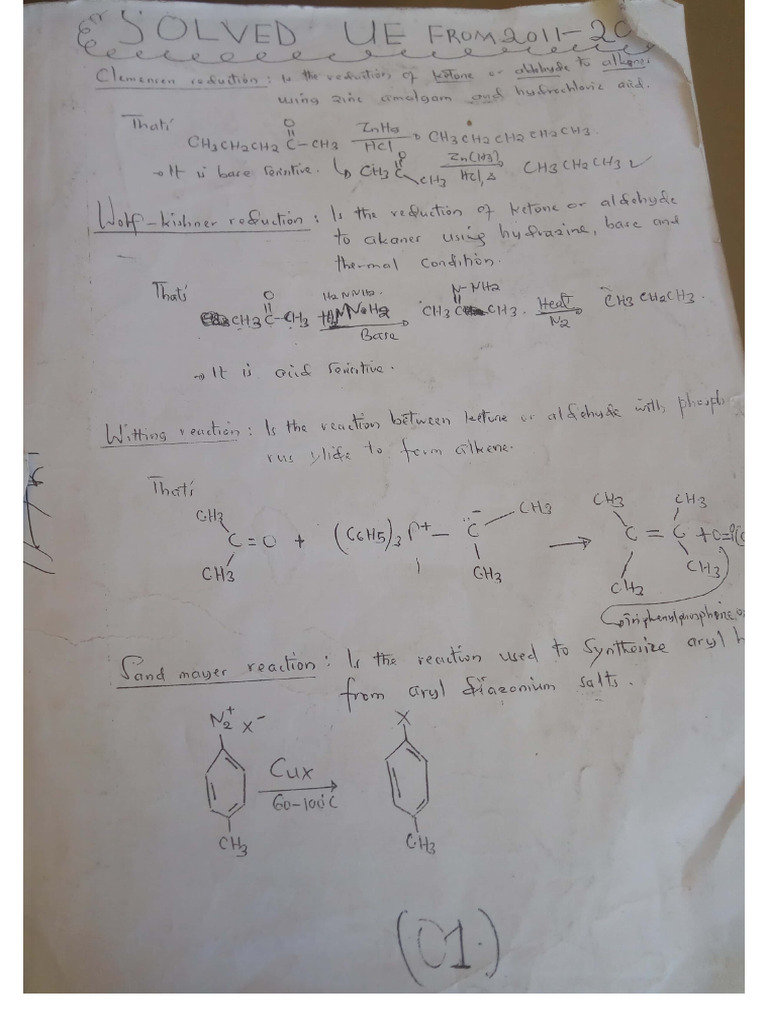 SOLVED UE FROM 2011-20
Clemencen reduction: Is the reduction of ketone or aldehyde to alkane.
using zinc amalgam and hydrochloric acid.
That's
O
CH3CH2CH2 C-CH3 ZnHg HCl CH3CH2CH2CH2CH3.
→ It is base sensitive. CH3 C O CH3 Zn(Hg) HCl, Δ CH3CH2CH3
Wolf-kishner reduction: Is the reduction of ketone or aldehyde
to alkanes using hydrazine, base and
thermal condition.
That's
O H2NNH2. N-NH2
CH3C-CH3 Base CH3 C CH3. Heat N2 CH3CH2CH3.
→ It is acid sensitive.
Witting reaction: Is the reaction between ketone or aldehyde with phosph
rus ylide to form alkene.
That's
CH3 CH3 CH3 CH3
C=O + (C6H5)3 P+ - C- → C = C + O=P(C
CH3 CH3 CH3 CH3
triphenylphosphine o
Sand mayer reaction: Is the reaction used to synthesize aryl h
from aryl diazonium salts.
N2+ X- X
CuX
60-100°C
CH3 CH3
(01.)